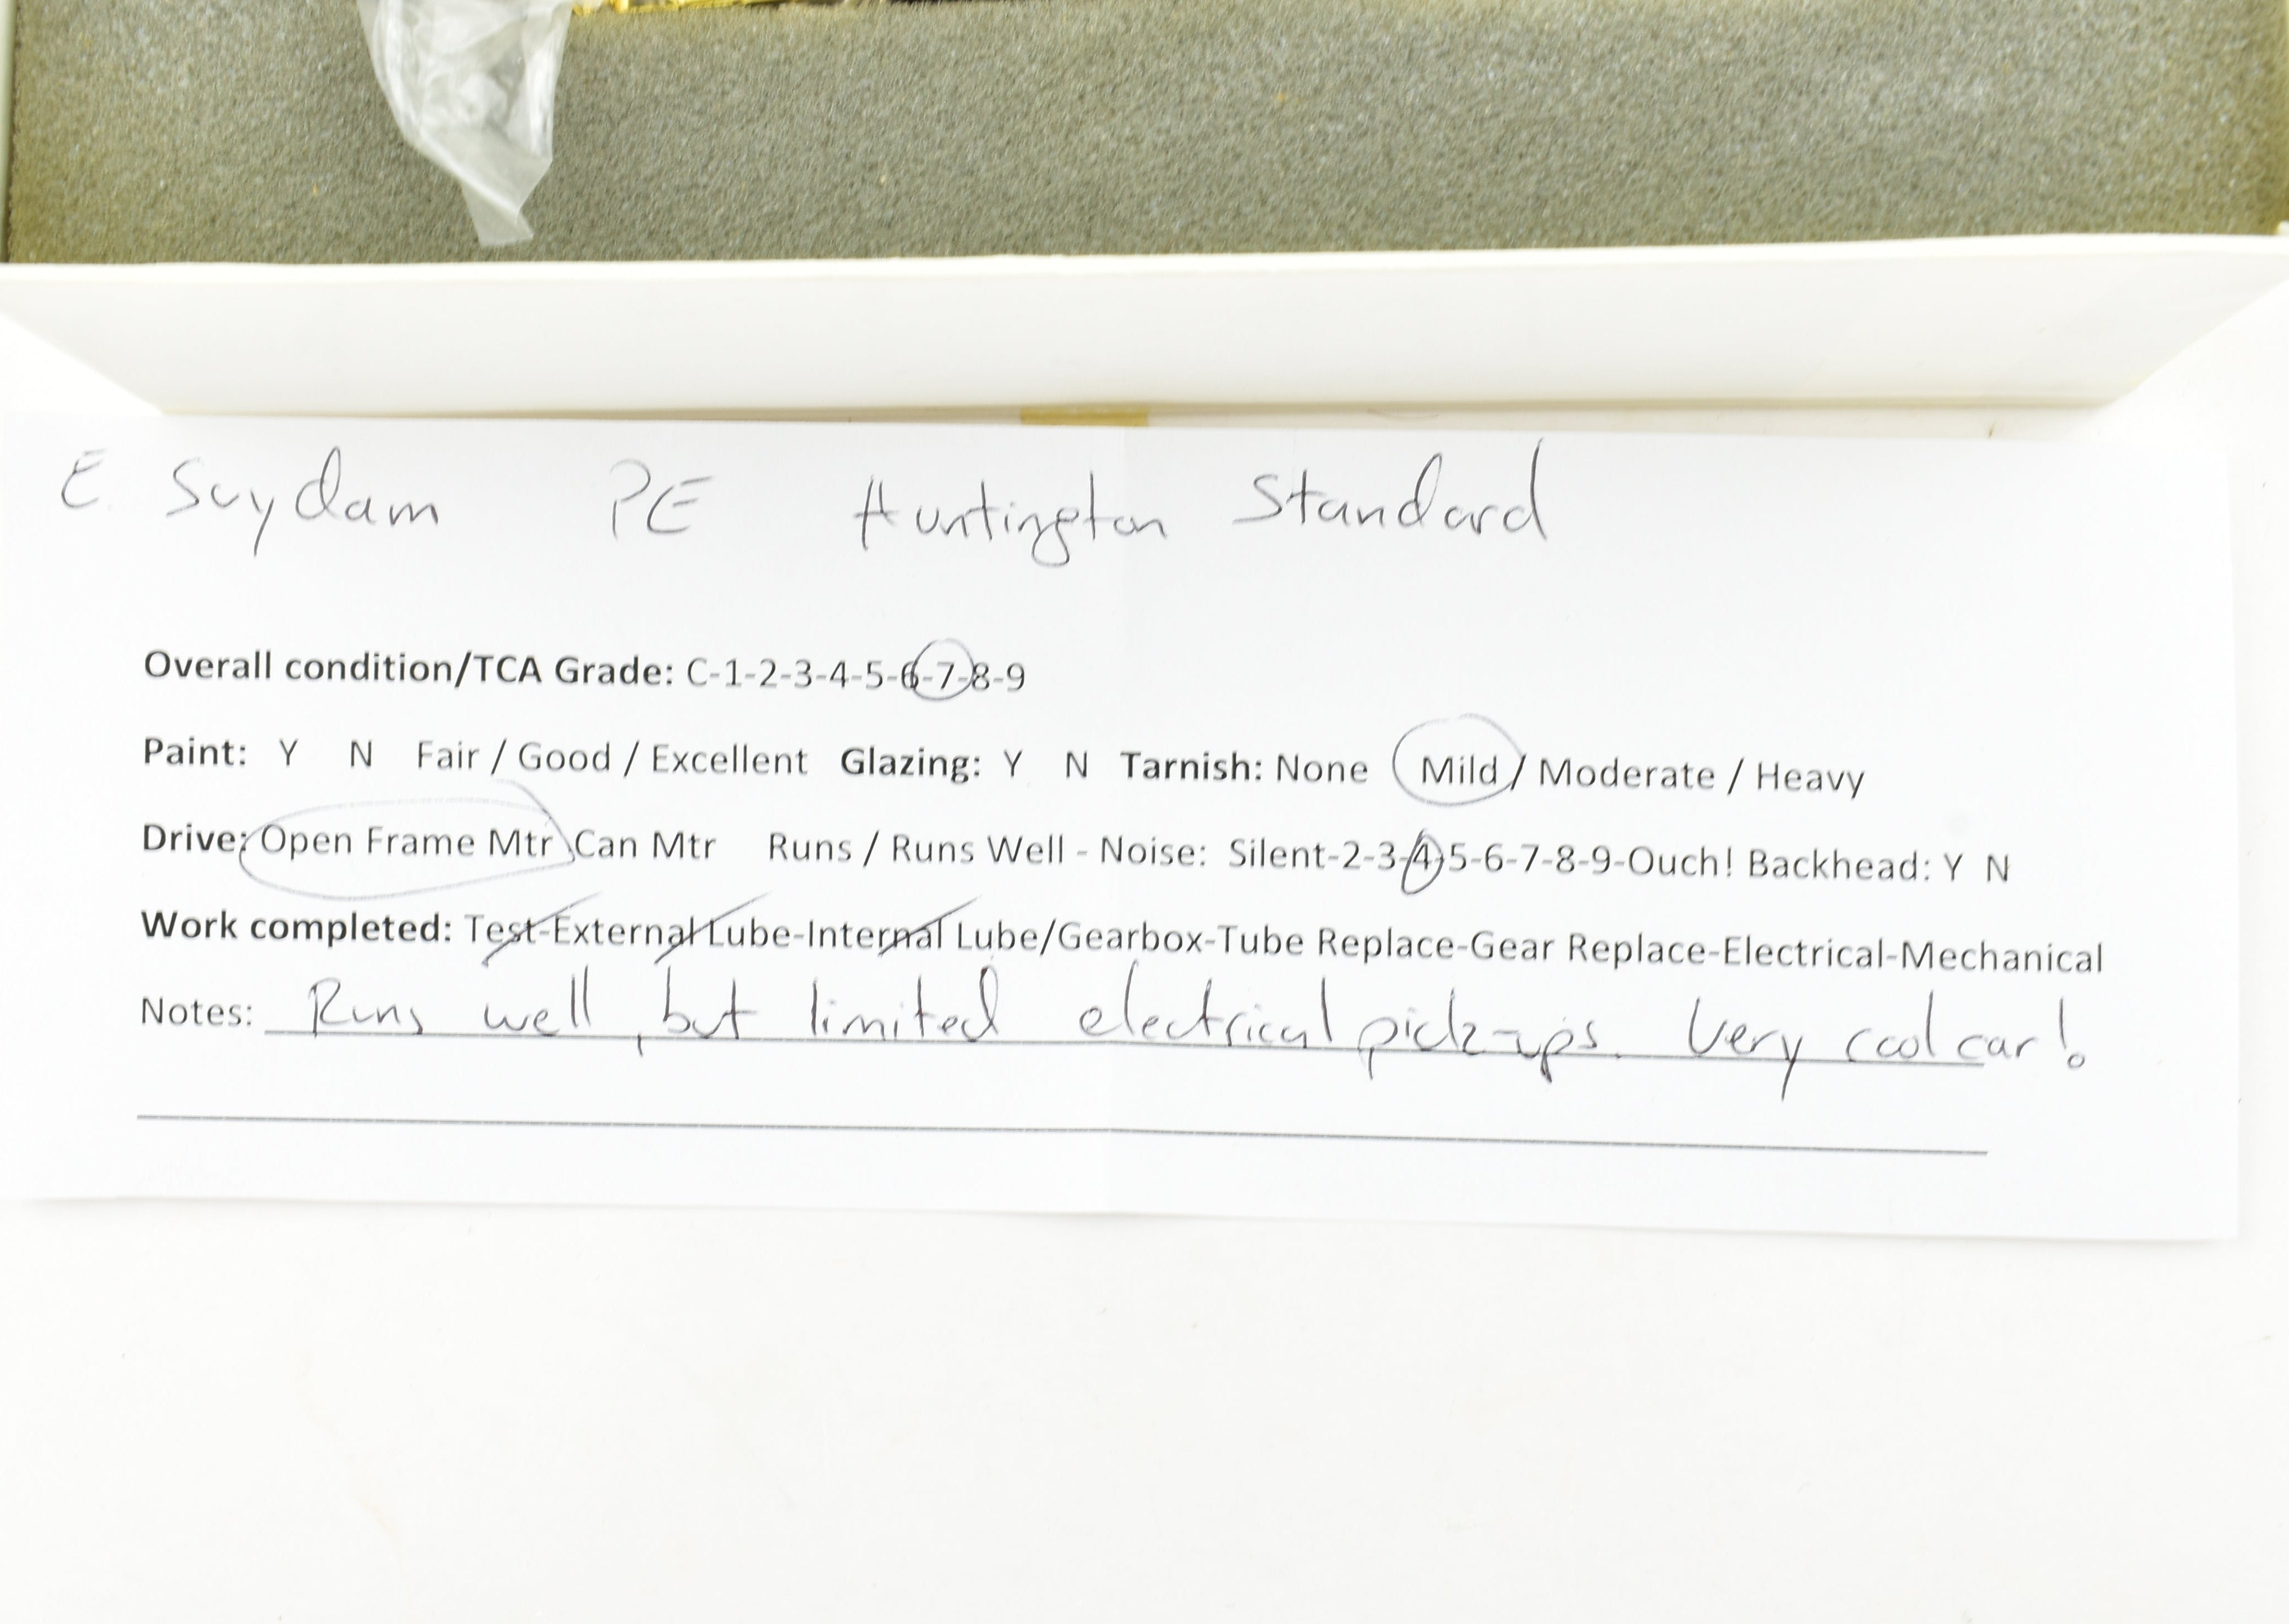 E. Suydam PE Huntington Standard
Overall condition/TCA Grade: C-1-2-3-4-5-6-7-8-9
Paint: Y N Fair / Good / Excellent Glazing: Y N Tarnish: None Mild / Moderate / Heavy
Drive: Open Frame Mtr Can Mtr Runs / Runs Well - Noise: Silent-2-3-4-5-6-7-8-9-Ouch! Backhead: Y N
Work completed: Test-External Lube-Internal Lube/Gearbox-Tube Replace-Gear Replace-Electrical-Mechanical
Notes: Runs well, but limited electrical pick-ups. Very cool car!